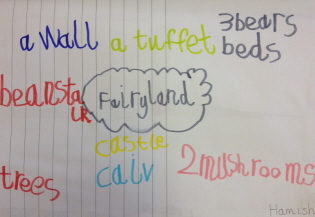 a wall a tuffet 3bears
beds
beansta
lk
Fairyland
castle
caiv
2mushrooms
trees
Hamish